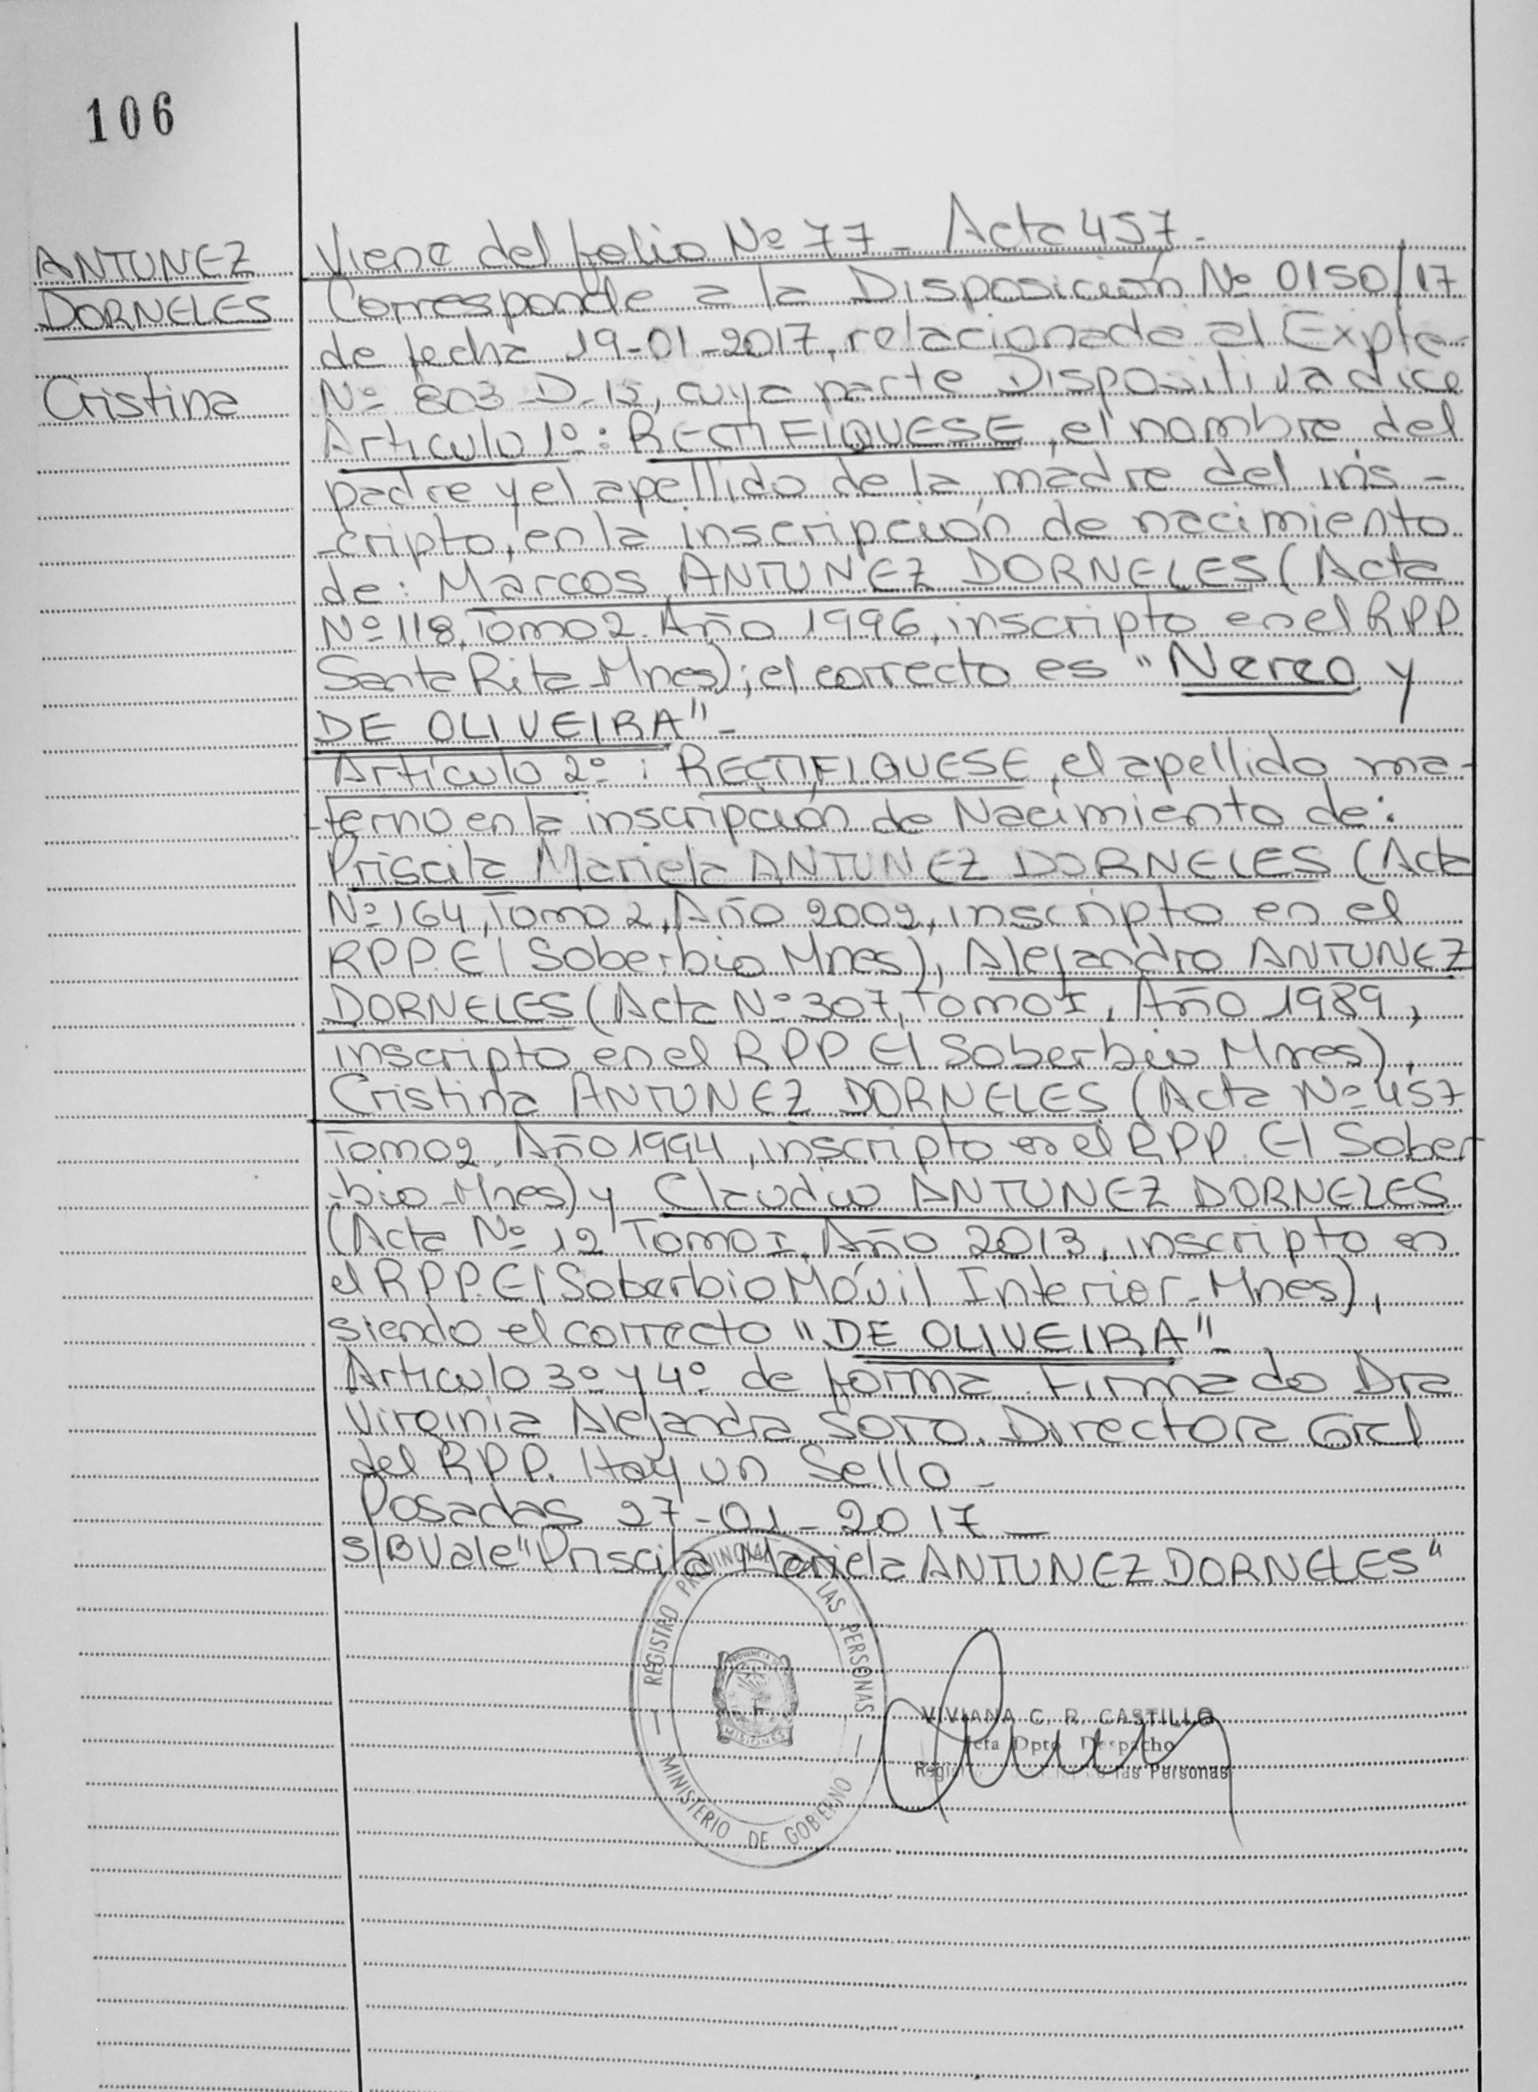 106
ANTUNEZ
DORNELES
Cristina
Viene del folio Nº 77 - Acta 457 -
Corresponde a la Disposición Nº 0150/17
de fecha 19-01-2017, relacionada al Expte
Nº 803-D-15, cuya parte Dispositiva dice
Artículo 1º: RECTIFIQUESE, el nombre del
padre y el apellido de la madre del ins-
-cripto, en la inscripción de nacimiento
de: Marcos ANTUNEZ DORNELES (Acta
Nº 118, Tomo 2. Año 1996, inscripto en el RPP
Santa Rita-Mnes); el correcto es "Nereo y
DE OLIVEIRA" -
Artículo 2º: RECTIFIQUESE, el apellido ma-
-terno en la inscripción de Nacimiento de:
Priscila Mariela ANTUNEZ DORNELES (Acta
Nº 164, Tomo 2, Año 2002, inscripto en el
RPP. El Soberbio Mnes), Alejandro ANTUNEZ
DORNELES (Acta Nº 307, Tomo I, Año 1989,
inscripto en el RPP. El Soberbio Mnes),
Cristina ANTUNEZ DORNELES (Acta Nº 457
Tomo 2, Año 1994, inscripto en el RPP. El Sober
-bio-Mnes) y Claudio ANTUNEZ DORNELES
(Acta Nº 12 Tomo I, Año 2013, inscripto en
el RPP. El Soberbio Móvil Interior-Mnes),
siendo el correcto "DE OLIVEIRA" -
Artículo 3º y 4º de forma. Firmado Dra
Virginia Alejandra SOTO. Directora Gral
del RPP. Hay un Sello -
Posadas 27-01-2017 -
S/B Vale "Priscila Mariela ANTUNEZ DORNELES"
REGISTRO PROVINCIAL DE LAS PERSONAS
MINISTERIO DE GOBIERNO
PROVINCIA
MISIONES
VIVIANA C. R. CASTILLO
Jefa Dpto Despacho
las Personas